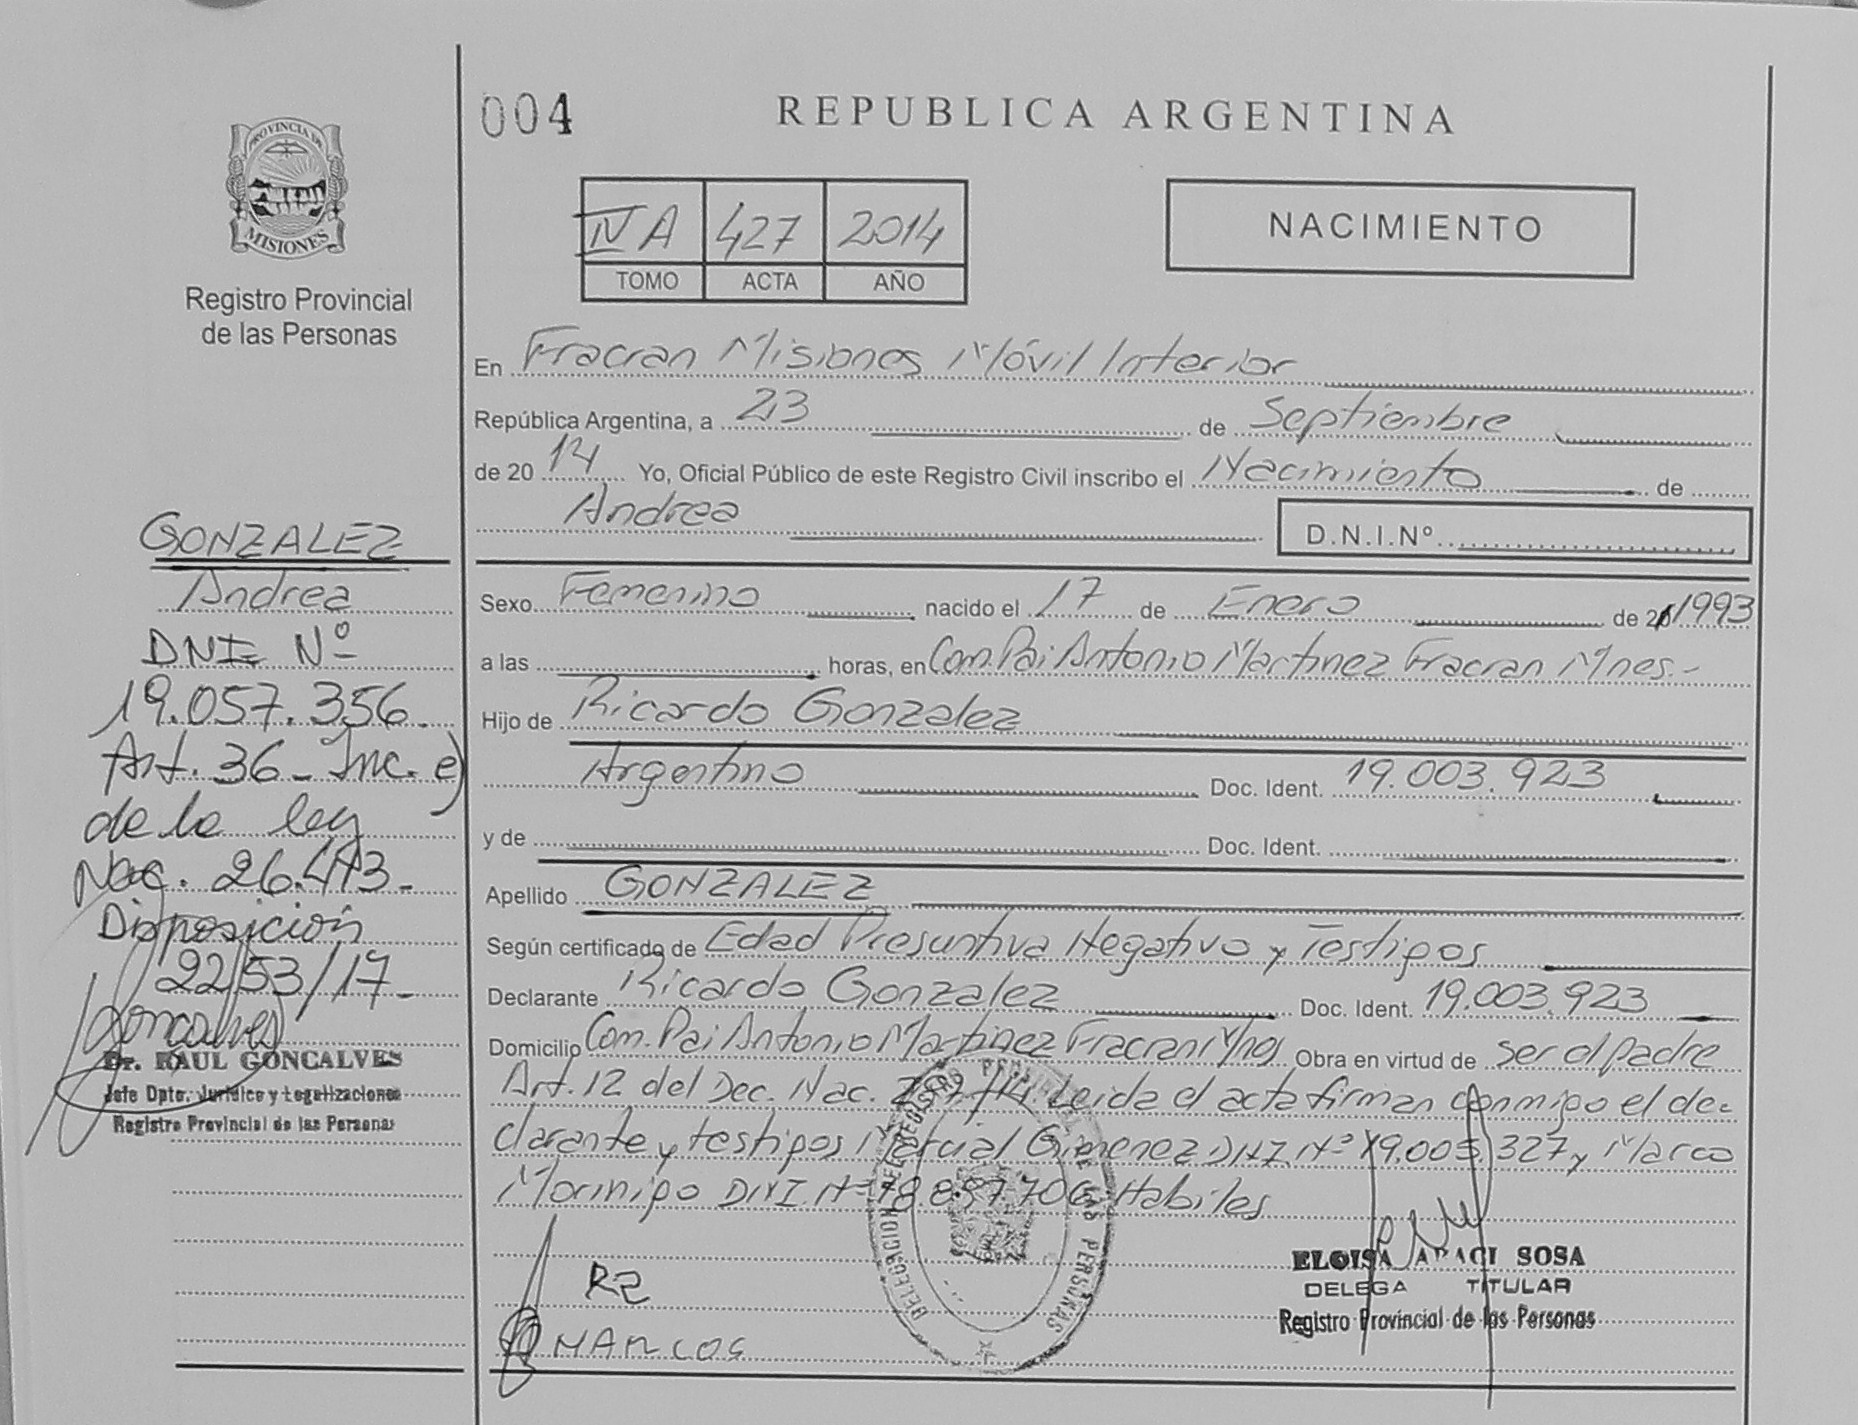 PROVINCIA DE
MISIONES
Registro Provincial
de las Personas
GONZALEZ
Andrea
DNI Nº
19.057.356.
Art. 36 - Inc. e)
de la ley
Nac. 26.413 -
Disposición
2253/17 -
Goncalves
Dr. RAUL GONCALVES
Jefe Dpto. Jurídico y Legalizaciones
Registro Provincial de las Personas
004
REPUBLICA ARGENTINA
IV A 427 2014
TOMO ACTA AÑO
NACIMIENTO
En Fracran Misiones Móvil Interior
República Argentina, a 23 de Septiembre
de 20 14 Yo, Oficial Público de este Registro Civil inscribo el Nacimiento de
Andrea D.N.I.Nº
Sexo Femenino nacido el 17 de Enero de 1993
a las horas, en Com. Pai Antonio Martinez Fracran Mnes.-
Hijo de Ricardo Gonzalez
Argentino Doc. Ident. 19.003.923
y de Doc. Ident.
Apellido GONZALEZ
Según certificado de Edad Presuntiva Negativo y Testigos
Declarante Ricardo Gonzalez Doc. Ident. 19.003.923
Domicilio Com. Pai Antonio Martinez Fracran Mnes Obra en virtud de ser el padre
Art. 12 del Dec. Nac. /14 Leida el acta firman conmigo el de-
clarante y testigos Marcial Gimenez D.N.I. Nº 19.005.327 y Marco
Morinigo D.N.I. Nº 18.857.706 Habiles
DELEGACION REGISTRO PROVINCIAL DE LAS PERSONAS
RZ
MARCOS
ELOISA ARACI SOSA
DELEGA TITULAR
Registro Provincial de las Personas